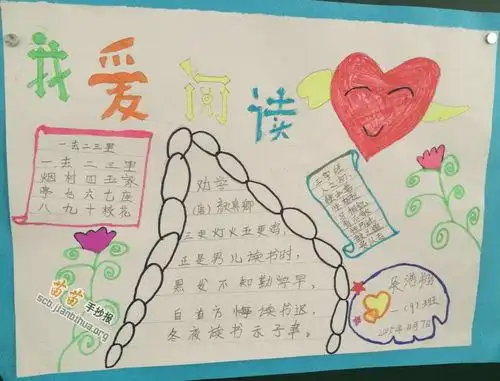 我爱阅读
一去二三里
一去二三里
烟村四五家
亭台六七座
八九十枝花
劝学
(唐) 颜真卿
三更灯火五更鸡,
正是男儿读书时,
黑发不知勤学早,
白首方悔读书迟。
冬夜读书示子聿。
三字经
人之初,
一(9)班
苗苗手抄报
scb.jianbihua.org